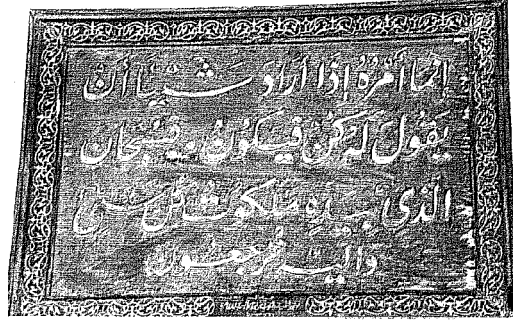 إنما أمره إذا أراد شيئا أن
يقول له كن فيكون فسبحان
الذى بيده ملكوت كل شئ
وإليه ترجعون